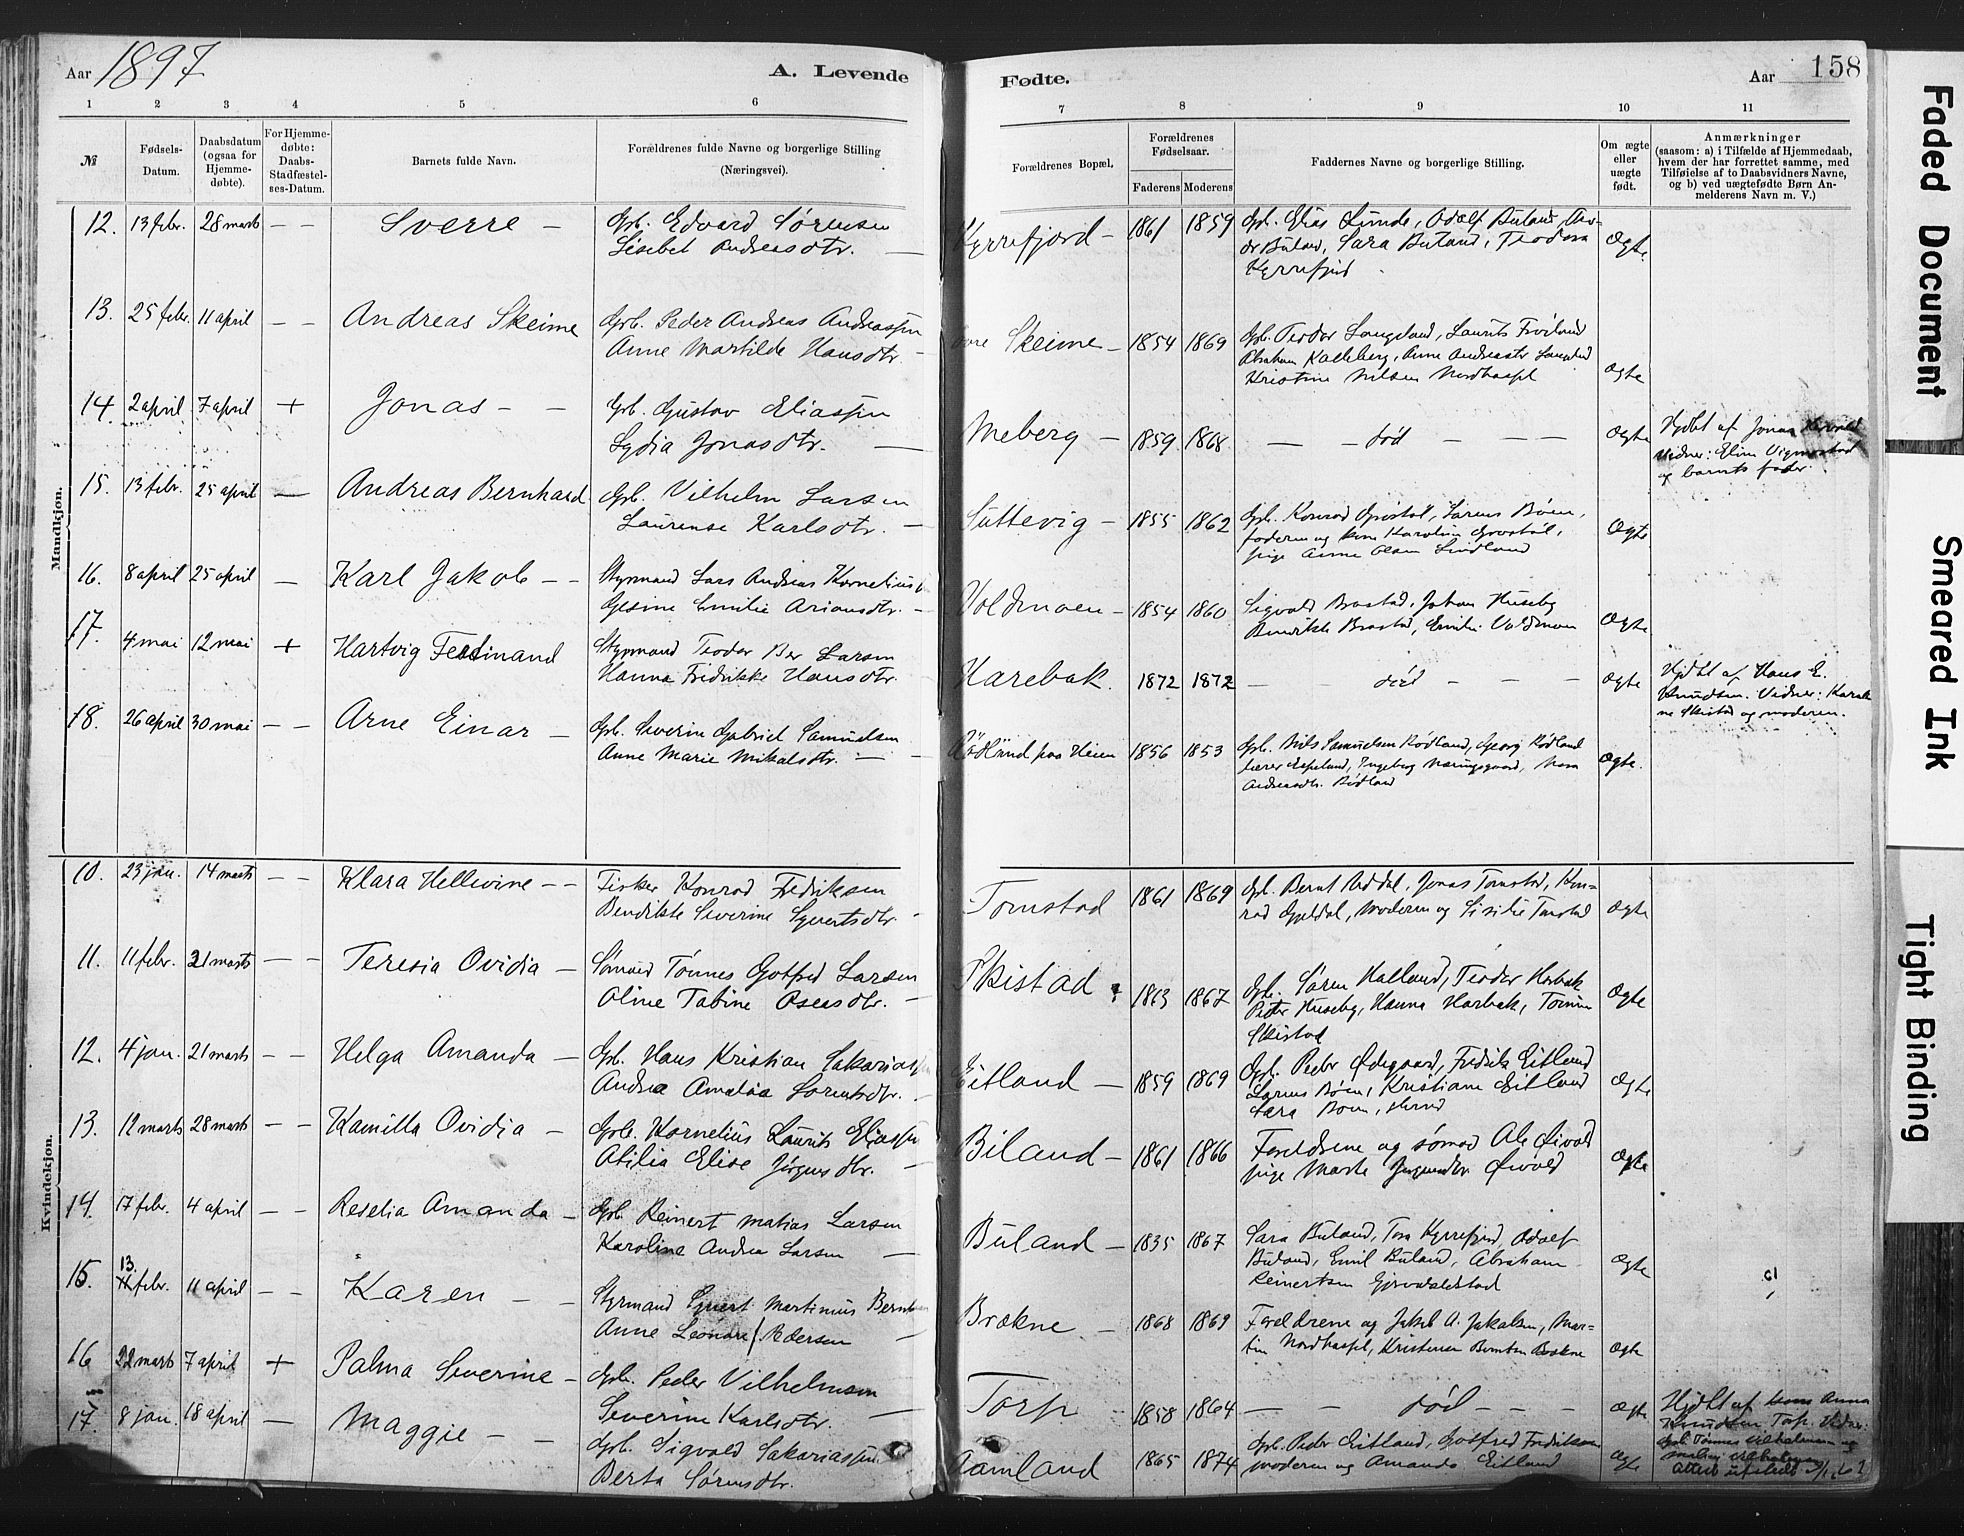 Aar 1897
A. Levende
Fødte.
Aar
158
1 2 3 4 5 6 7 8 9 10 11
№
Fødsels-
Datum.
Daabsdatum
(ogsaa for
Hjemme-
døbte).
For Hjemme-
døbte:
Daabs-
Stadfæstel-
ses-Datum.
Barnets fulde Navn.
Forældrenes fulde Navne og borgerlige Stilling
(Næringsvei).
Forældrenes Bopæl.
Forældrenes
Fødselsaar.
Faderens Moderens
Faddernes Navne og borgerlige Stilling.
Om ægte
eller
uægte
født.
Anmærkninger
(saasom: a) i Tilfælde af Hjemmedaab,
hvem der har forrettet samme, med
Tilføielse af to Daabsvidners Navne,
og b) ved uægtefødte Børn An-
melderens Navn m. V.)
Mandkjøn.
12. 13 febr. 28 marts – – Sverre –
Gpb. Edvard Sørensen
Lisebet Andreasdtr. –
Kyrrefjord – 1861 1859
Gpb. Elias Lunde, Adolf Buland,
Buland, Sara Buland, Teodora
Kyrrefjord
Ægte
13. 25 febr. 11 april – – Andreas Skeime
Gpb. Peder Andreas Andreassen
Anne Martilde Hansdtr. –
Skeime – 1854 1869
Gpb. Teodor Langeland, Laurits Frøiland
Abraham Kaddeberg, Anne Andreasdtr
Kristine Nilsen Nordhassel
Ægte
14. 2 april 7 april + Jonas – –
Gpb. Gustav Eliassen
Lydia Jonasdtr. –
Meberg – 1859 1868
– – død – – –
Ægte
Hjdbt af Jonas
Vidner: Eline Vigmostad
og barnets fader.
15. 13 febr. 25 april – Andreas Bernhard
Gpb. Vilhelm Larsen
Laurense Karlsdtr. –
Sættevig – 1855 1862
Gpb. Konrad, Lars Bøen,
faderen og Karoline
pige Anne Olsen Lindland
Ægte
16. 8 april 25 april – Karl Jakob – –
Styrmand Lars Andreas Kornelius
Gesine Emilie Ariansdtr. –
Voldmoen – 1854 1860
Sigvald Brastad, Johan Huseby
Bendikte Brastad, Emilie Voldmoen
Ægte
17. 4 mai 12 mai + Hartvig Ferdinand
Styrmand Teodor Ber Larsen
Hanna Fredrikke Hansdtr. –
Harebak. 1872 1872
– – død – – –
Ægte
Hjdbt af Hans E.
Knudsen. Vidner: Karoli-
ne Skistad og moderen.
18. 26 april 30 mai – – Arne Einar –
Gpb. Severin Gabriel Samuelsen
Anne Marie Mikalsdtr. – –
Rødland paa Heien 1856 1853
Gpb. Nils Samuelsen Rødland, Georg Rødland
lærer Espeland, Ingeborg
Andreasdtr. Rødland
Ægte.
Kvindekjøn.
10. 23 jan. 14 marts – – Klara Hellevine – –
Fisker Konrad Fredriksen
Bendikte Severine Syvertsdtr. –
Tomstad 1861 1869
Gpb. Bernt Røddal, Jonas Tomstad, Kon-
rad, Moderen og Sisilie Tomstad
Ægte
11. 11 febr. 21 marts – – Teresia Ovidia –
Sømand Tønnes Gotfred Larsen
Oline Tabine Osensdtr. –
Skistad 1863 1867
Gpb. Søren Halland, Teodor Harbak
Peder Huseby, Hanna Harbak, Tomine
Skistad
Ægte
12. 4 jan. 21 marts – – Helga Amanda –
Gpb. Hans Kristian Sakariassen
Andrea Amalia Sorentsdtr. –
Eitland – 1859 1869
Gpb. Peder Ødegaard, Fredrik Eitland
Larens Bøen, Kristiane Eitland
Sara Boen
Ægte
13. 12 marts 28 marts – – Kamilla Ovidia –
Gpb. Kornelius Laurits Eliassen
Atilia Elise Jørgensdtr. –
Biland – 1861 1866
Foreldrene og sømand Ole Øivold
pige Marte Øivold
Ægte
14. 17 febr. 4 april – – Reselia Amanda –
Gpb. Reinert Matias Larsen
Karoline Andrea Larsen –
Buland – 1835 1867
Sara Buland, Tora Kyrrefjord, Adolf
Buland, Emil Buland, Abraham
Reinertsen
Ægte
15. 13 febr. 11 april – – Karen – –
Styrmand Syvert Martinius Berntsen
Anne Leonore Pedersen –
Brækne – 1868 1869
Foreldrene og Jakob A. Jakobsen, Mar-
tin Nordhassel, Kristense Berntsen Brækne
Ægte
16 22 marts 7 april + Palma Severine –
Gpb. Peder Vilhelmsen
Severine Karlsdtr. –
Torp 1858 1864
– – død – – –
Ægte
Hjdbt af Anna
Knudsen Torp. Vidner:
Gpb. Tønnes Vilhelmsen og
17. 8 jan. 18 april – Maggie – –
Gpb. Sigvald Sakariassen
Berta Sørensdtr.
Aamland 1865 1874
Gpb. Peder Eitland, Gotfred Fredriksen
moderen og Amanda Eitland
Ægte
Attest utstedt
Faded Document
Smeared Ink
Tight Binding